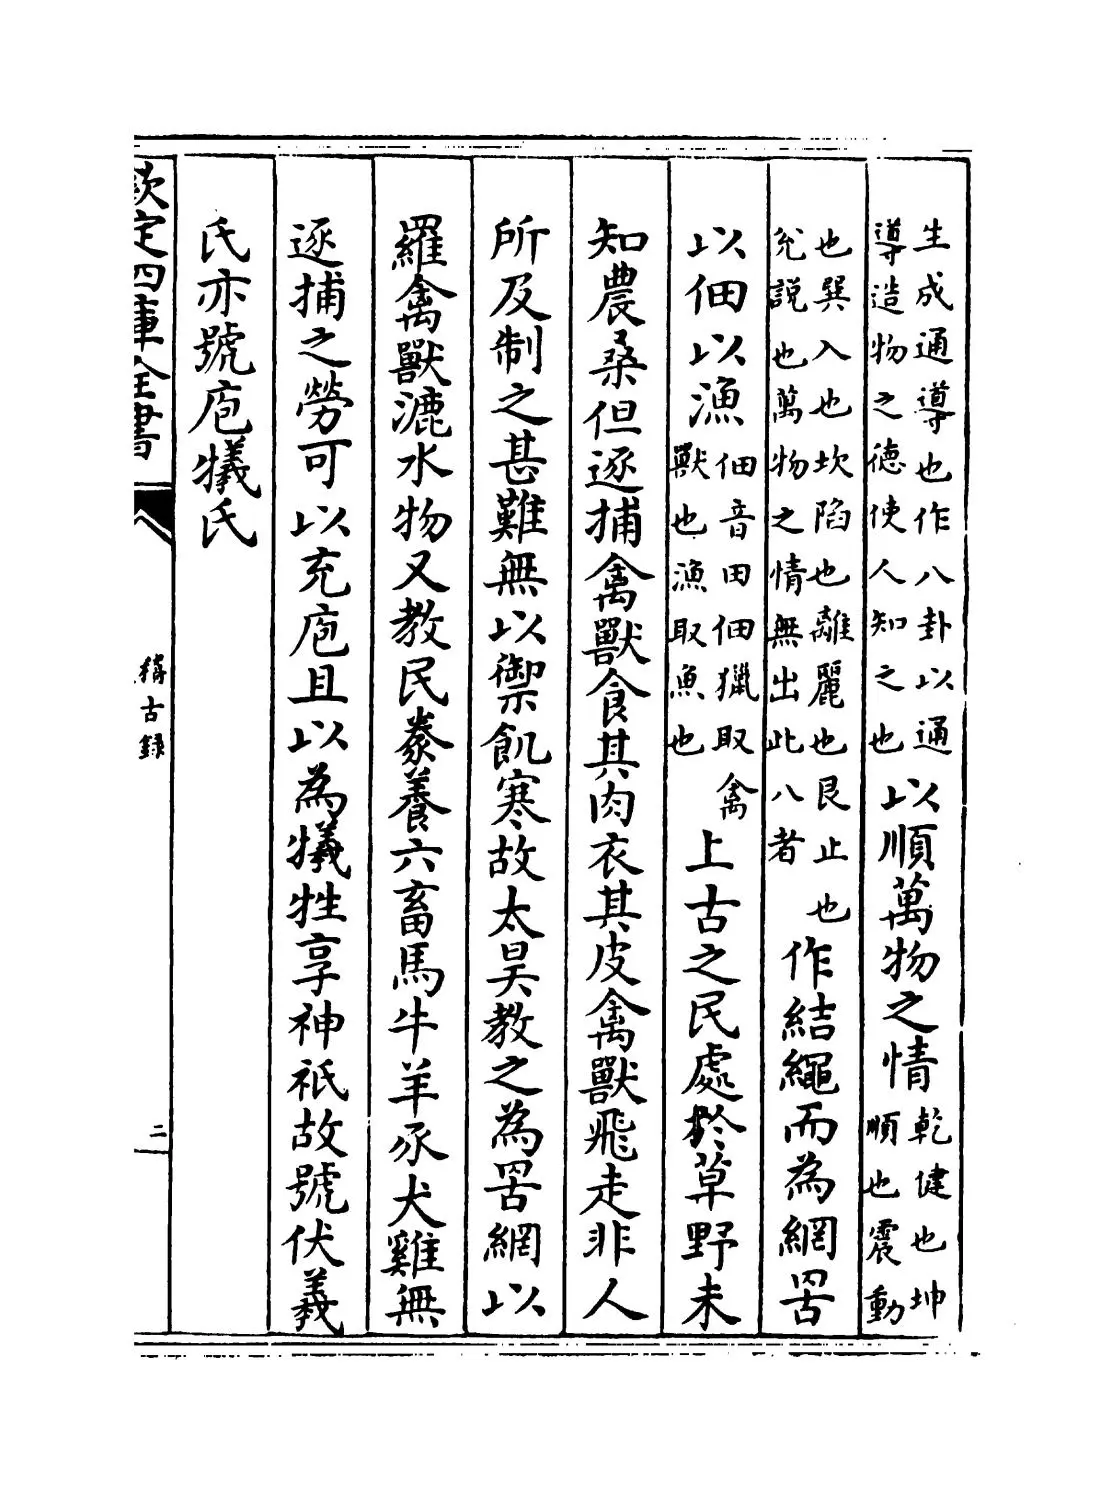 生成通導也作八卦以通導造物之德使人知之也以順萬物之情乾健也坤順也震動
也巽入也坎陷也離麗也艮止也兊説也萬物之情無出此八者作結繩而為網罟
以佃以漁佃音田佃獵取禽獸也漁取魚也上古之民處於草野未
知農桑但逐捕禽獸食其肉衣其皮禽獸飛走非人
所及制之甚難無以禦飢寒故太昊教之為罟網以
羅禽獸漉水物又教民豢養六畜馬牛羊豕犬雞無
逐捕之勞可以充庖且以為犧牲享神祇故號伏羲
氏亦號庖犧氏
欽定四庫全書
稽古録
二